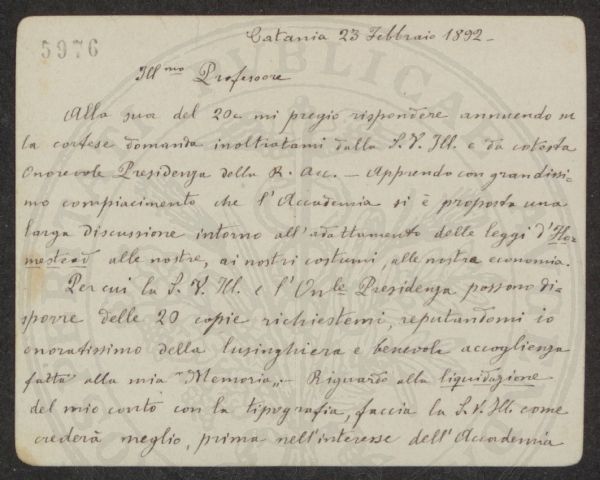 5976
Catania 23 Febbraio 1892 -
Ill mo Professore
Alla sua del 20 c mi pregio rispondere annuendo su
la cortese domanda inoltratami dalla S. V. Ill. e da cotesta
Onorevole Presidenza della R. Acc. - Apprendo con grandissi-
mo compiacimento che l'Accademia si è proposta una
larga discussione intorno all'adattamento delle leggi d'Ho-
mestead alle nostre, ai nostri costumi, alle nostra economia.
Per cui la S. V. Ill. e l'On le Presidenza possono di-
sporre delle 20 copie richiestemi, reputandomi io
onoratissimo della lusinghiera e benevola accoglienza
fatta alla mia "Memoria„ - Riguardo alla liquidazione
del mio conto con la tipografia, faccia la S. V. Ill. come
crederà meglio, prima nell'interesse dell'Accademia